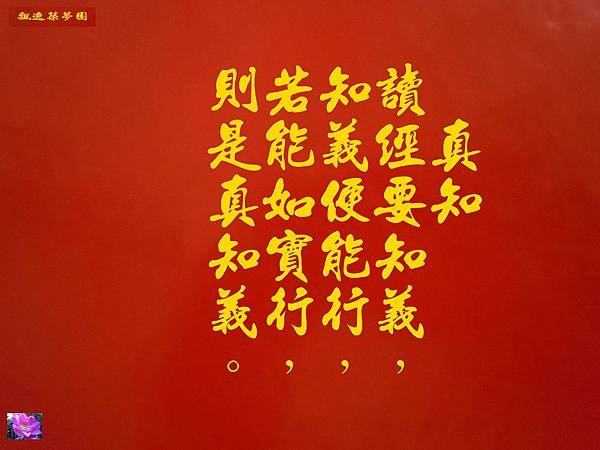 飄逸築夢園
真知
讀經要知義，
知義便能行，
若能如實行，
則是真知義。